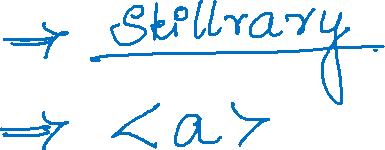 ⇒ Skillrary
⇒ <a>